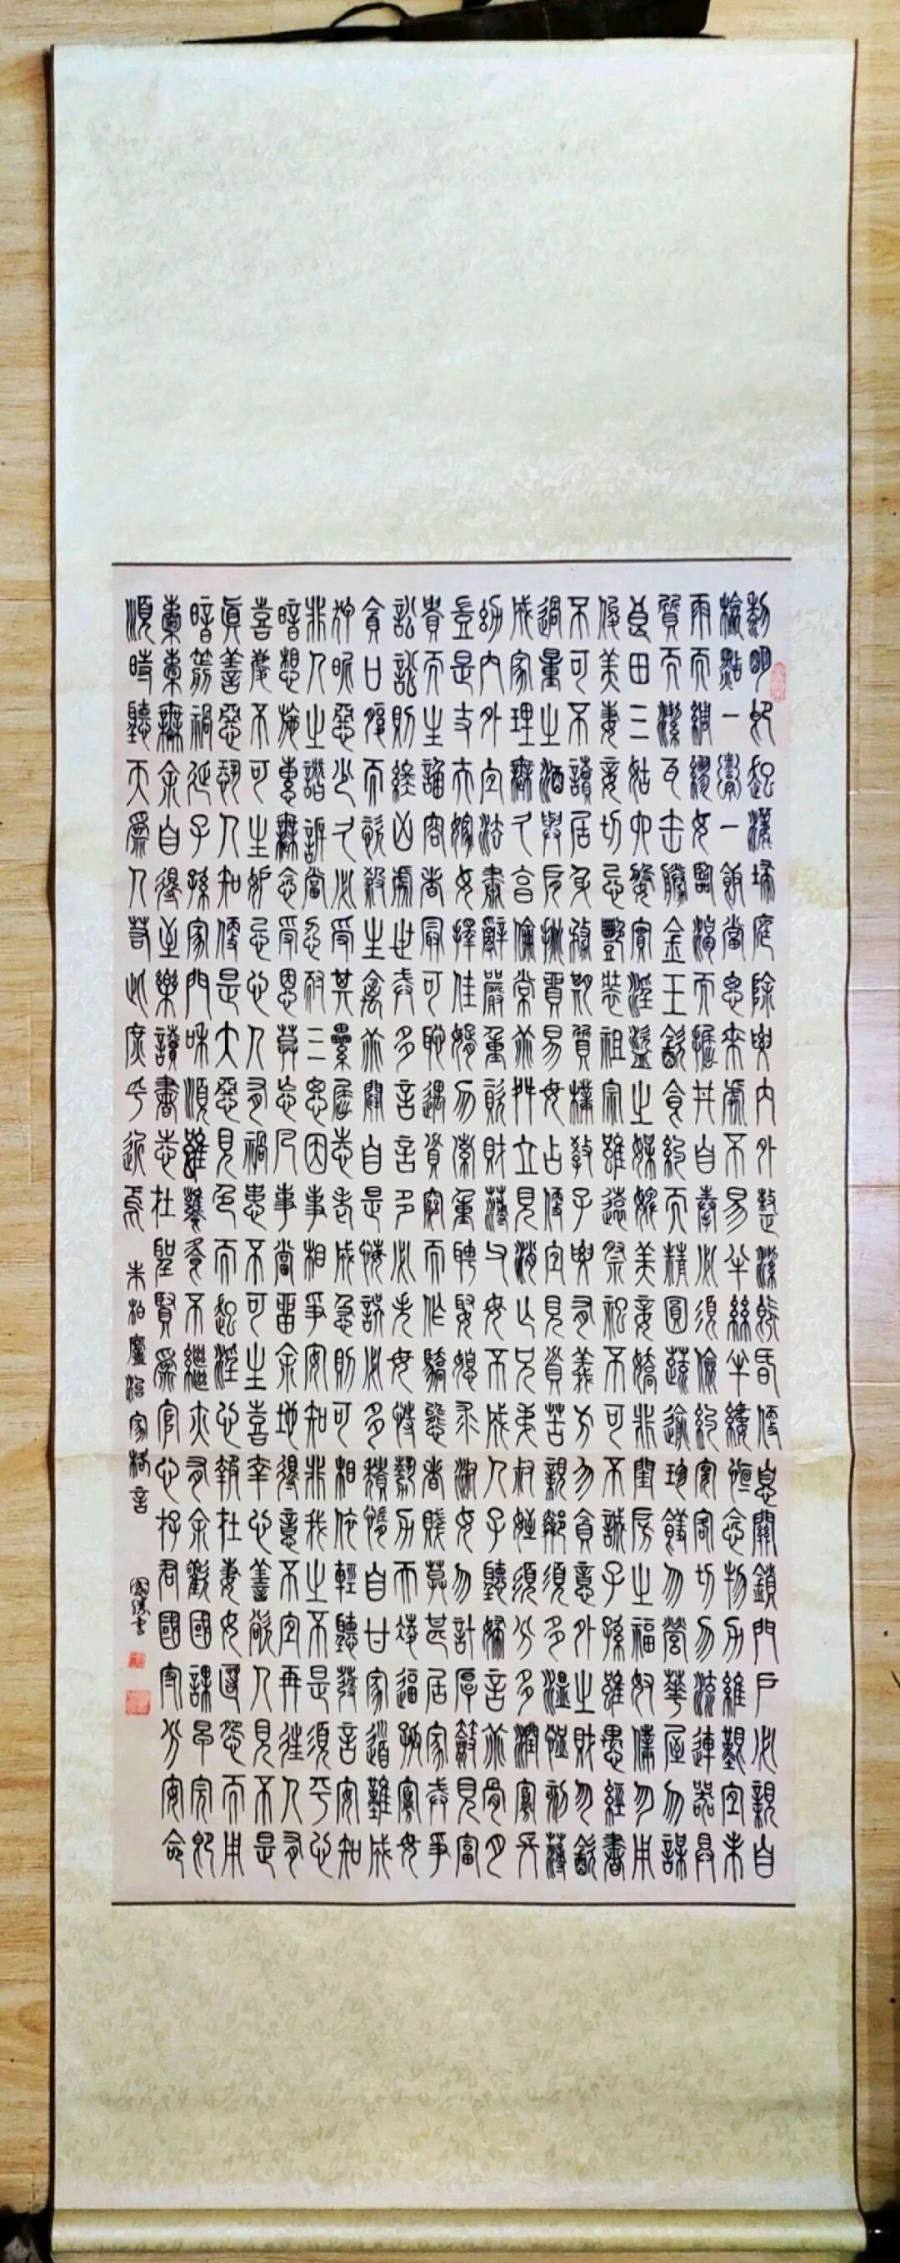 黎明即起灑掃庭除要內外整潔既昏便息關鎖門戶必親自
檢點一粥一飯當思來處不易半絲半縷恒念物力維艱宜未
雨而綢繆毋臨渴而掘井自奉必須儉約宴客切勿流連器具
質而潔瓦缶勝金玉飲食約而精園蔬逾珍饈勿營華屋勿謀
良田三姑六婆實淫盜之媒婢美妾嬌非閨房之福奴僕勿用
俊美妻妾切忌艷裝祖宗雖遠祭祀不可不誠子孫雖愚經書
不可不讀居身務期質樸教子要有義方勿貪意外之財勿飲
過量之酒與肩挑貿易毋占便宜見貧苦親鄰須多溫恤刻薄
成家理無久享倫常乖舛立見消亡兄弟叔姪須分多潤寡長
幼內外宜法肅辭嚴重資財薄父母不成人子聽婦言乖骨肉
豈是丈夫嫁女擇佳婿勿索重聘娶媳求淑女勿計厚奩見富
貴而生諂容者最可恥遇貧窮而作驕態者賤莫甚居家戒爭
訟訟則終凶處世戒多言言多必失毋恃勢力而凌逼孤寡毋
貪口腹而恣殺生禽乖僻自是悔誤必多頹惰自甘家道難成
狎昵惡少久必受其累屈志老成急則可相依輕聽發言安知
非人之譖訴當忍耐三思因事相爭安知非我之不是須平心
暗想施惠無念受恩莫忘凡事當留余地得意不宜再往人有
喜慶不可生妒忌心人有禍患不可生喜幸心善欲人見不是
真善惡恐人知便是大惡見色而起淫心報在妻女匿怨而用
暗箭禍延子孫家門和順雖饔飧不繼亦有余歡國課早完即
囊橐無余自得至樂讀書志在聖賢為官心存君國守分安命
順時聽天為人若此庶乎近焉 朱柏廬治家格言 國書